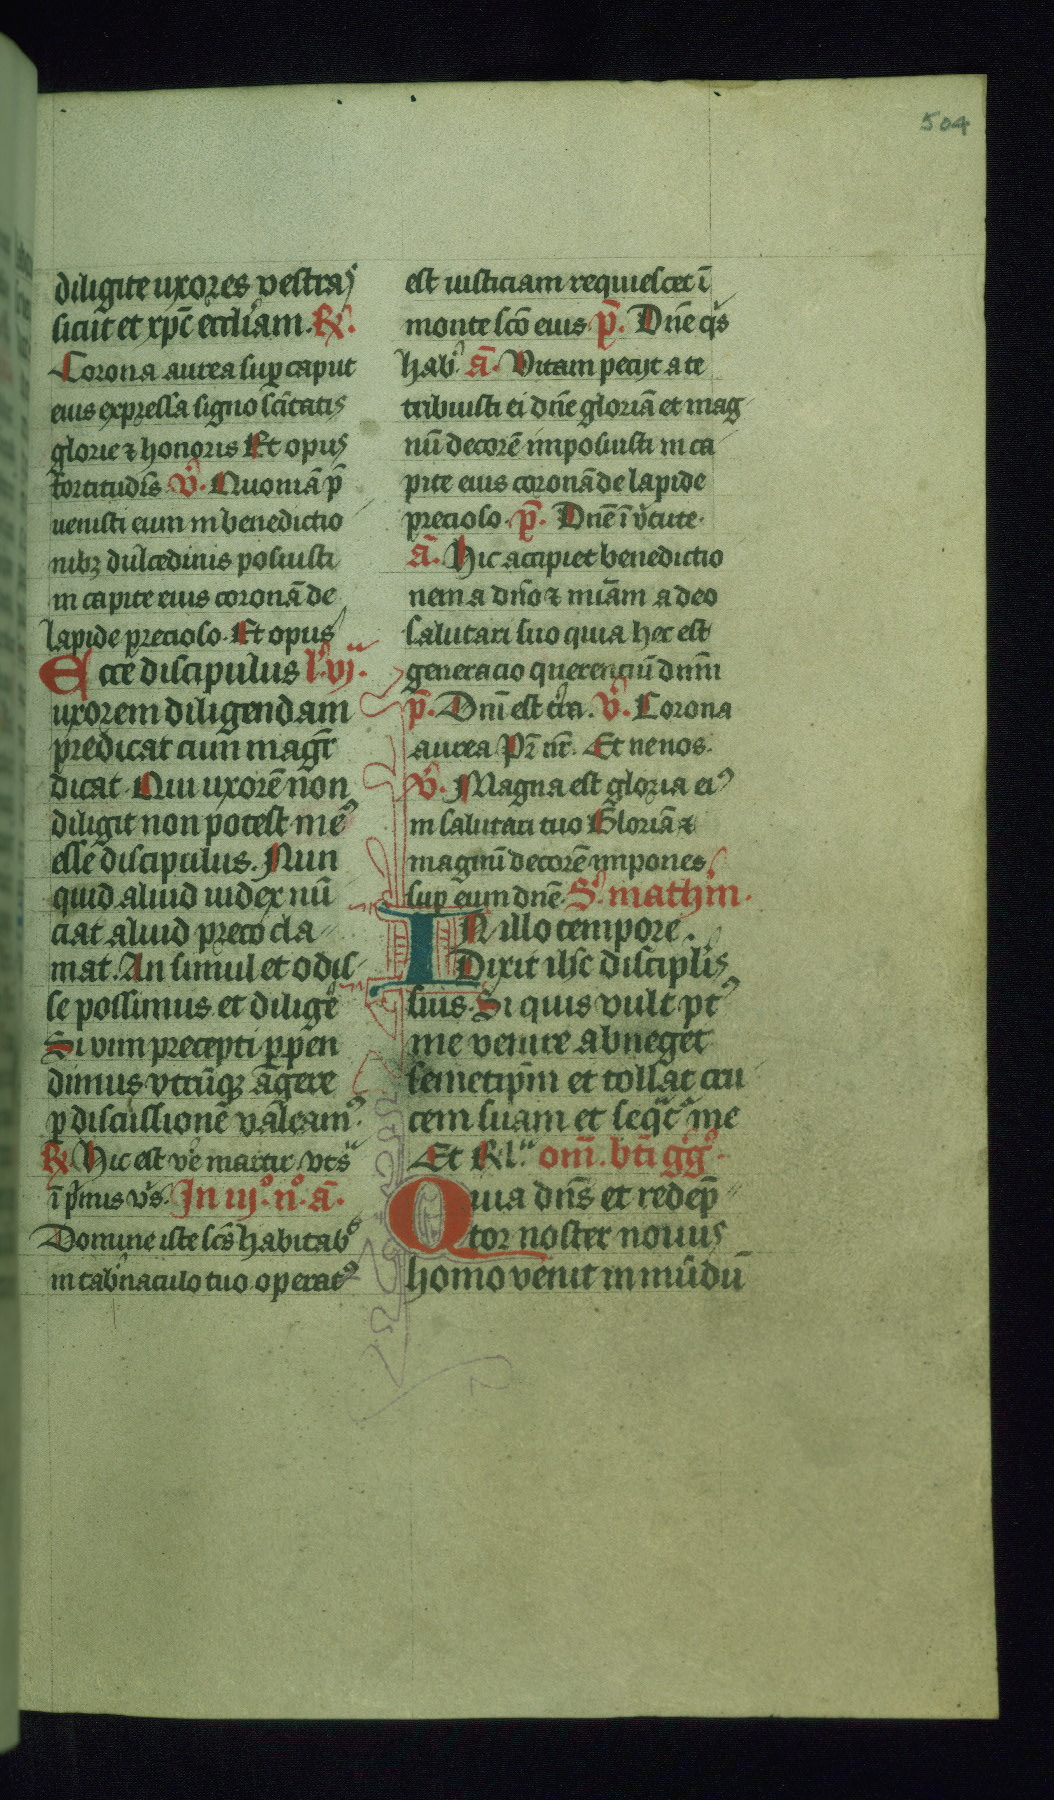 504
diligite uxores vestras
sicut et xp̄c eccl̄iam. R̸.
Corona aurea sup̱ caput
eius expressa signo sc̄itatis
glorie ⁊ honoris Et opus
fortitudīs v̄. Quoniā p̄
uenisti eum in benedictio
nibꝫ dulcedinis posuisti
in capite eius coronā de
lapide precioso. Et opus
Ecce discipulus l̄. vj.
uxorem diligendam
predicat cum magr̄
dicat Qui uxorē non
diligit non potest meꝰ
esse discipulus. Nun
quid aliud iudex nū
ciat aliud preco cla
mat. An simul et odis
se possimus et diligē
Si vim precepti p̱pen
dimus vtrūqꝫ agere
p̱ discussionē valeamꝰ.
R̸ Hic est ve᷒ martir vts̄
ī pͥmis vs̄. In iijͦ. nͦ. ā.
Domine iste sc̄s habitabͭ
in tab̄naculo tuo operatꝰ
est iusticiam requiescet ī
monte sc̄o eius p̄. Dn̄e qͥs
hab᷒ ā. Vitam pecijt a te
tribuisti ei dn̄e gloriā et mag
nū decorē imposuisti in ca
pite eius coronā de lapide
precioso. p̄. Dn̄e ī v̄tute.
ā. Hic accipiet benedictio
nem a dn̄o ⁊ miām a deo
salutari suo quia hec est
generacio querenciū dnm̄
p̄. Dn̄i est t̄ra. v̄. Corona
aurea Pr̄ nr̄. Et ne nos.
v̄. Magna est gloria eiꝰ
in salutari tuo Gloriā ⁊
magnū decorē impones
sup̱ eum dn̄e. Sͨ. mathm̄.
IN illo tempore.
Dixit ih̄c disciplīs
suis. Si quis vult pꝰt
me venire abneget
semetip̄m et tollat cru
cem suam et seqͣtꝰ me
Et Rl̄. om̄. bt̄i gͥgͦ.
Quia dn̄s et redep̄
tor noster nouus
homo venit in mūdū